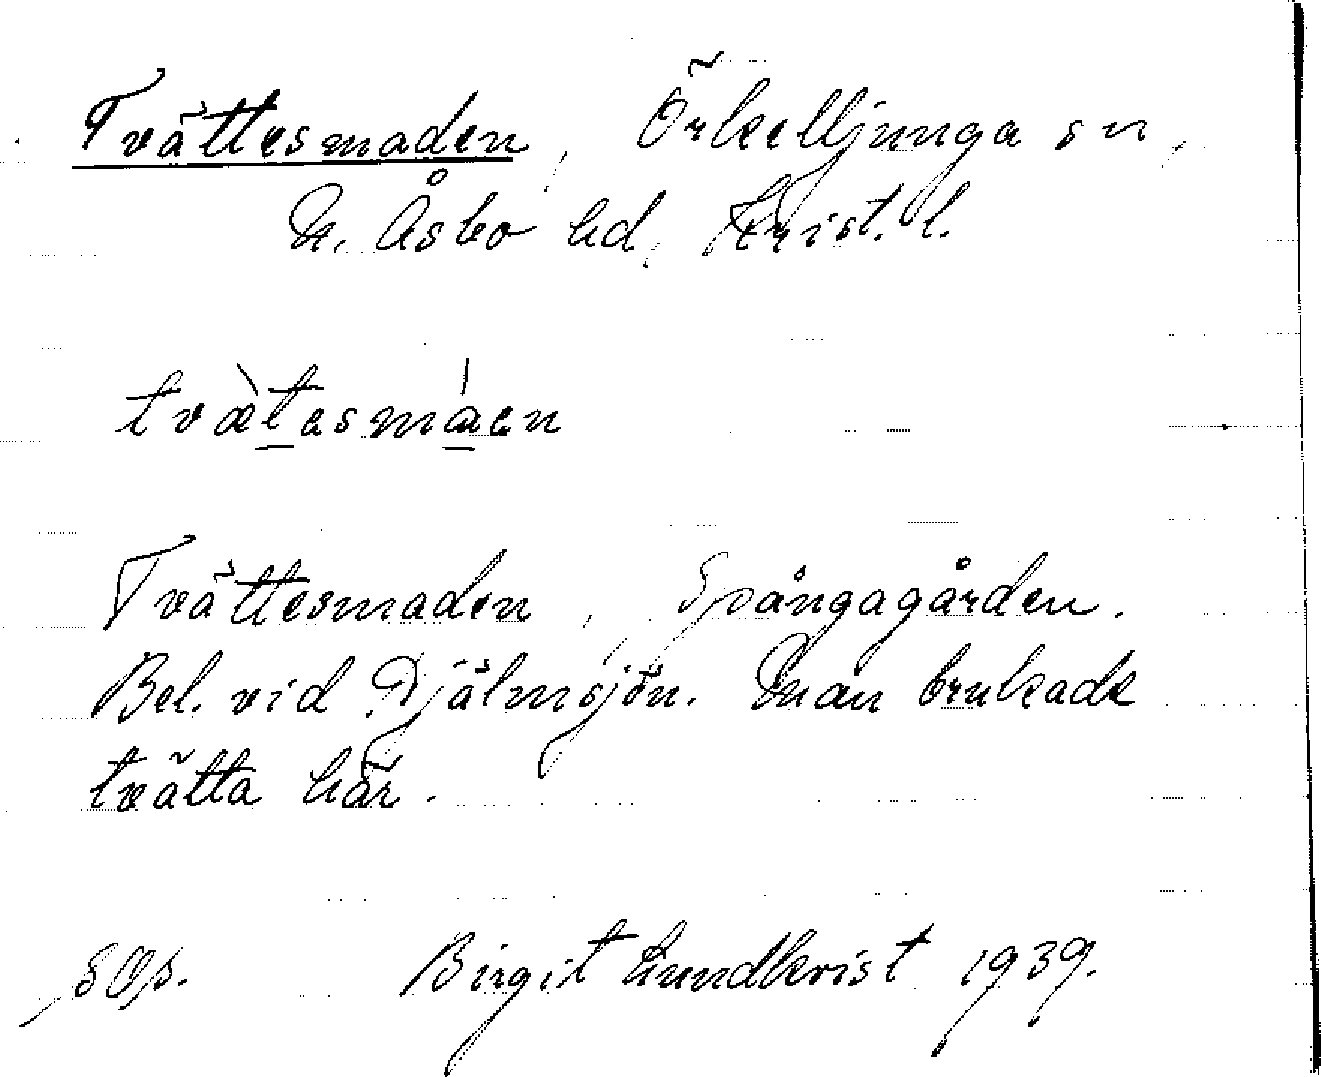 Tvättesmaden, Örkelljunga sn,
N. Åsbo hd, Krist. l.
tvæ̀tesmáen
Tvättesmaden, Spångagården.
Bel. vid Hjälmsjön. Man brukade
tvätta här.
Birgit Lundkvist 1939.